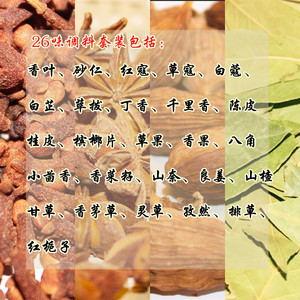 26味调料套装包括：
香叶、砂仁、红蔻、草寇、白蔻、
白芷、荜拔、丁香、千里香、陈皮
桂皮、槟榔片、草果、香果、八角
小茴香、香菜籽、山奈、良姜、山楂
甘草、香茅草、灵草、孜然、排草、
红栀子